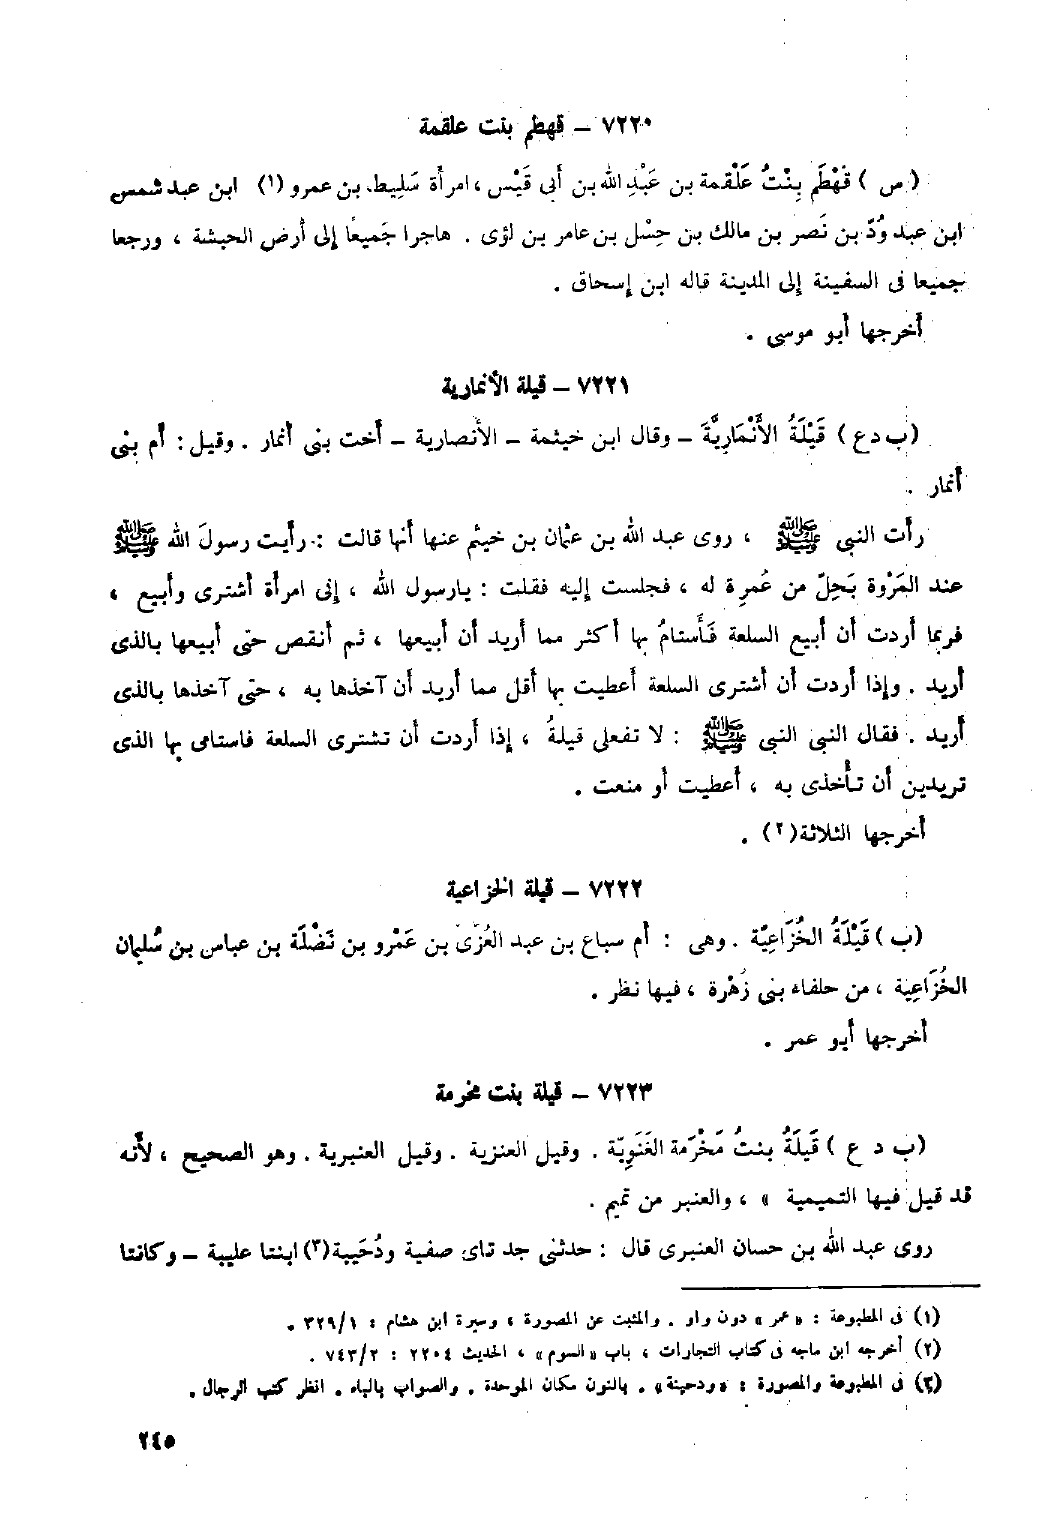 ٧٢٢٠ – قهطم بنت علقمة
( س ) قَهْطَم بِنْتُ عَلْقمة بن عَبْدِ الله بن أَبى قَيْس ، امرأة سَلِيط بن عمرو (١) ابن عبد شمس
ابن عبد وُدّ بن نَصر بن مالك بن حِسْل بن عامر بن لؤى . هاجرا جَميعًا إلى أرض الحبشة ، ورجعا
جميعا فى السفينة إلى المدينة قاله ابن إسحاق .
أخرجها أبو موسى .
٧٢٢١ – قيلة الأنمارية
( ب د ع ) قَيْلَةُ الأَنْمَارِيَّةَ – وقال ابن خيثمة – الأنصارية – أخت بنى أنمار . وقيل : أم بنى
أنمار .
رأت النبى ﷺ ، روى عبد الله بن عثمان بن خيثم عنها أنها قالت : رأيت رسولَ الله ﷺ
عند المَرْوة بَحِلّ من عُمرِة له ، فجلست إليه فقلت : يارسول الله ، إنى امرأة أشترى وأبيع ،
فربما أردت أن أبيع السلعة فَأَستامُ بها أكثر مما أريد أن أبيعها ، ثم أنقص حتى أبيعها بالذى
أريد . وإذا أردت أن أشترى السلعة أعطيت بها أقل مما أريد أن آخذها به ، حتى آخذها بالذى
أريد . فقال النبى النبى ﷺ : لا تفعلى قيلةُ ، إذا أردت أن تشترى السلعة فاستامى بها الذى
تريدين أن تأخذى به ، أعطيت أو منعت .
أخرجها الثلاثة(٢) .
٧٢٢٢ – قيلة الخزاعية
( ب ) قَيْلَةُ الخُزَاعِيّة . وهى : أم سباع بن عبد العُزّى بن عَمْرو بن نَضْلَة بن عباس بن سُليمان
الخُزَاعِية ، من حلفاء بنى زُهْرة ، فيها نظر .
أخرجها أبو عمر .
٧٢٢٣ – قيلة بنت مخرمة
( ب د ع ) قَيلَةُ بنتُ مَخْرَمة الغَنَوِيّة . وقيل العنزية . وقيل العنبرية . وهو الصحيح ، لأنه
قد قيل فيها التميمية » ، والعنبر من تميم .
روى عبد الله بن حسان العنبرى قال : حدثنى جد تاى صفية ودُحَيبة(٣) ابنتا عليبة – وكانتا
(١) فى المطبوعة : « عمر » دون واو . والمثبت عن المصورة ، وسيرة ابن هشام : ٣٢٩/١ .
(٢) أخرجه ابن ماجه فى كتاب التجارات ، باب « السوم » ، الحديث ٢٢٠٤ : ٧٤٣/٢ .
(٣) فى المطبوعة والمصورة : « ودحينة » . بالنون مكان الموحدة . والصواب بالباء . انظر كتب الرجال .
٢٤٥